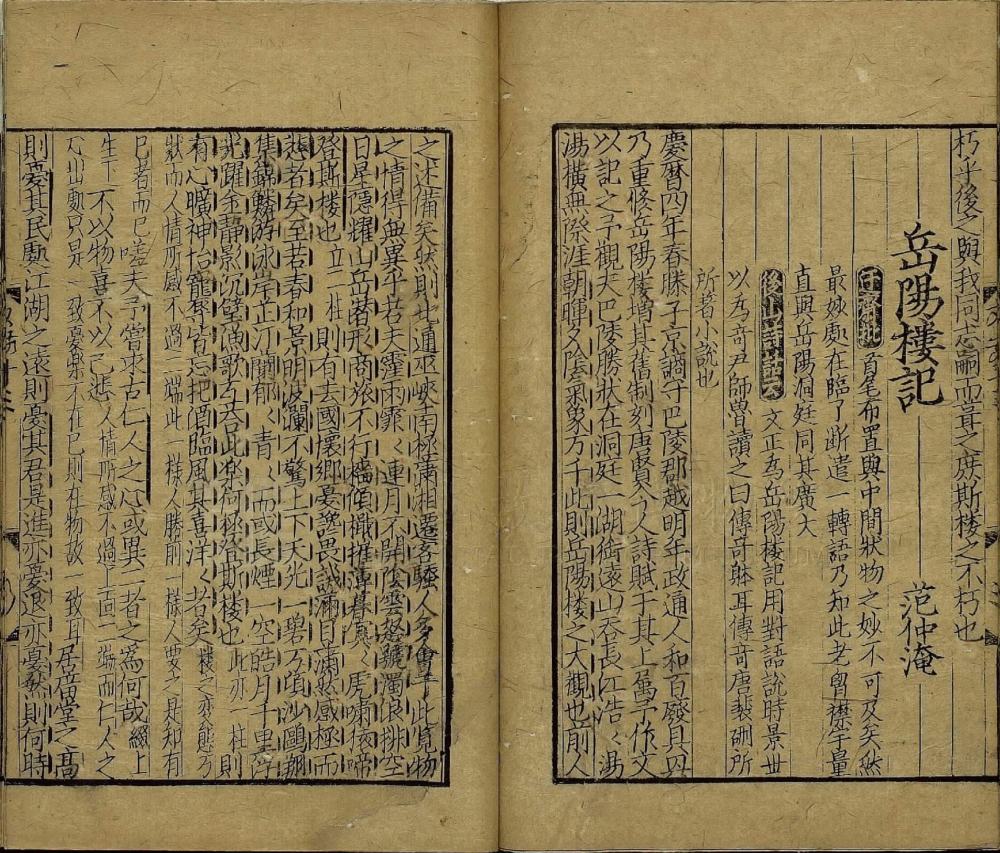 朽乎後之與我同志嗣而葺之庶斯楼之不朽也
岳陽樓記 范仲淹
迂齋批 首尾布置與中間狀物之妙不可及矣然
最妙處在臨了断遣一轉語乃知此老胷襟宇量
直與岳陽洞庭同其廣大
後山詩話云 文正為岳陽楼記用對語說時景世
以為竒尹師魯讀之曰傳竒躰耳傳竒唐裴硎所
所著小說也
慶曆四年春滕子京謫守巴陵郡越明年政通人和百廢具興
乃重修岳陽楼增其舊制刻唐賢今人詩賦于其上属予作文
以記之予觀夫巴陵勝狀在洞庭一湖銜遠山吞長江浩〱湯
湯橫無際涯朝暉夕陰氣象万千此則岳陽楼之大觀也前人
之述備矣然則北通巫峽南極潇湘遷客騷人多會于此覧物
之情得無異乎若夫霪雨霏〱連月不開陰雲怒號濁浪排空
日星隱耀山岳潜形商旅不行檣傾檝摧薄暮𡨋〱虎嘯猿啼
登斯楼也 立二柱 則有去國懷鄉憂讒畏譏滿目潚然感極而
悲者矣至若春和景明波瀾不驚上下天光一碧万頃沙鷗翔
集錦鱗游泳岸芷汀蘭郁〱青〱而或長煙一空皓月千里浮
光躍金靜影沉璧漁歌互荅此楽何極登斯楼也 此亦一柱 則
有心曠神怡寵辱皆忘把酒臨風其喜洋〱者矣 楼之变態乃
狀而人情所感不過二端此一樣人勝前一樣人要之是知有
已者而已 嗟夫予嘗求古仁人之心或異二者之為何哉 綴上
生下 不以物喜不以己悲 人情所感不過上面二端而仁人之
心出處只是一致憂樂不在已則在物故一致耳 居庙堂之髙
則憂其民處江湖之遠則憂其君是進亦憂退亦憂然則何時